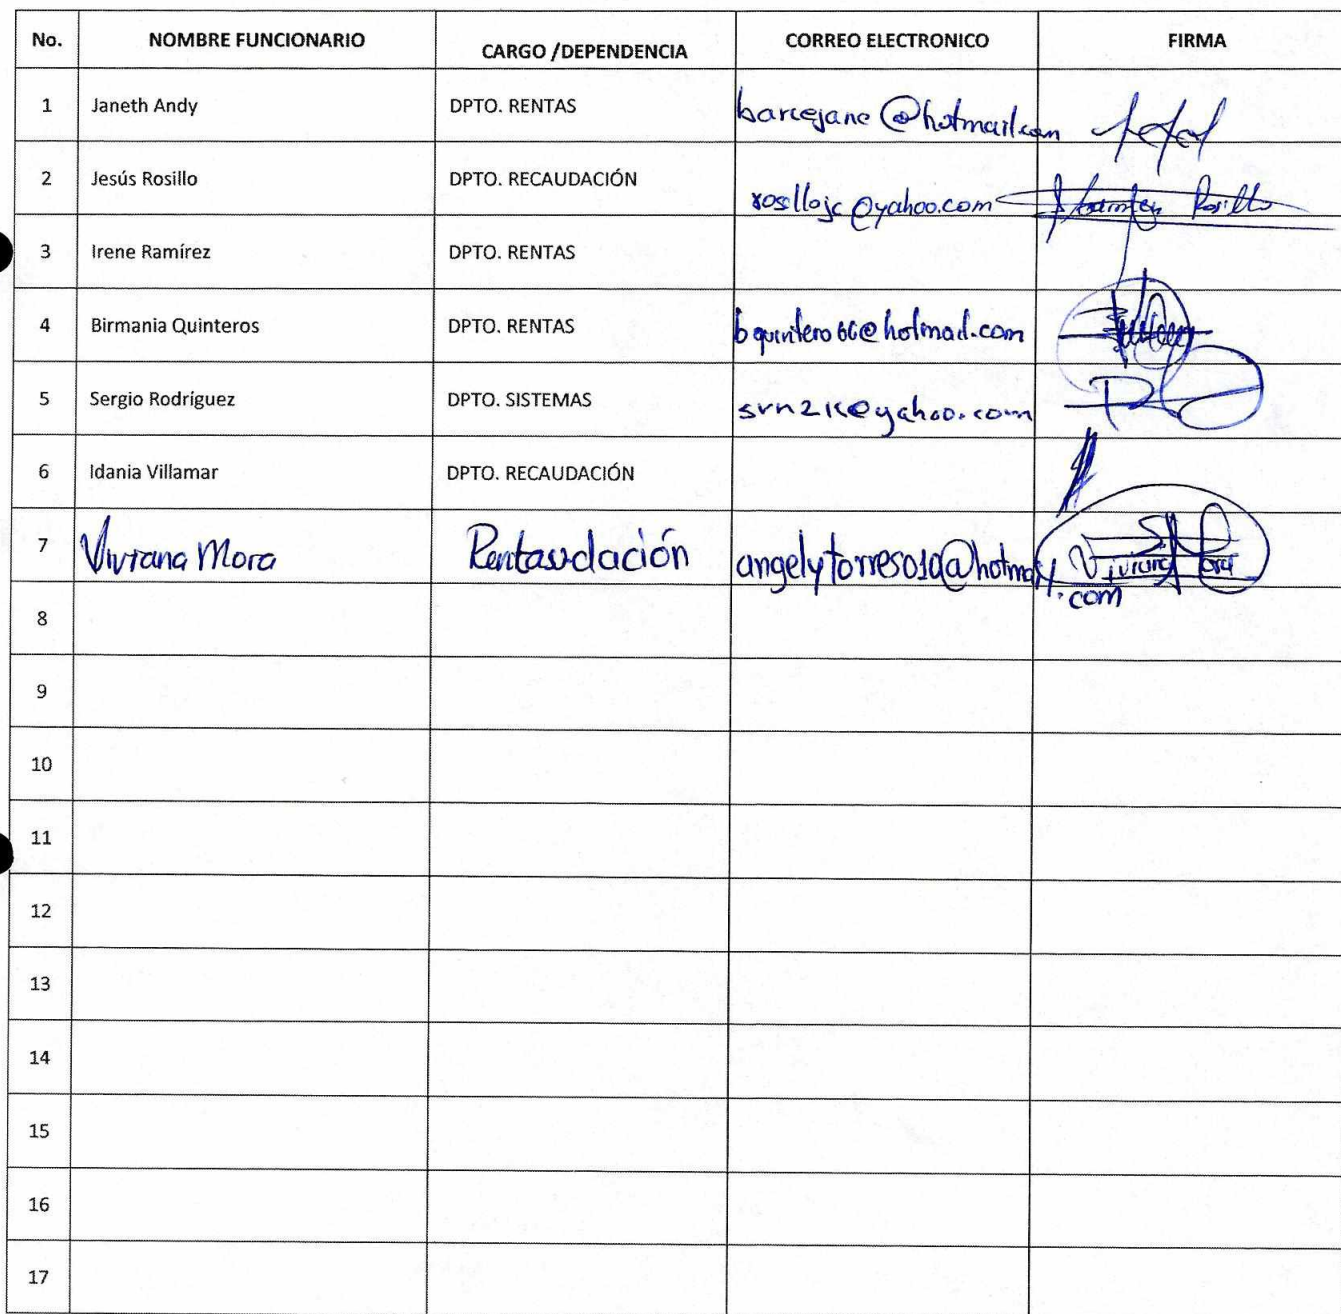 No. NOMBRE FUNCIONARIO CARGO /DEPENDENCIA CORREO ELECTRONICO FIRMA
1 Janeth Andy DPTO. RENTAS barcejane@hotmail.com
2 Jesús Rosillo DPTO. RECAUDACIÓN rosllojc@yahoo.com Rosillo
3 Irene Ramírez DPTO. RENTAS
4 Birmania Quinteros DPTO. RENTAS bquintero66@hotmail.com
5 Sergio Rodríguez DPTO. SISTEMAS srn21c@yahoo.com
6 Idania Villamar DPTO. RECAUDACIÓN
7 Viviana Mora Rentasudación angelytorres010@hotmail Viviana Mora
.com
8
9
10
11
12
13
14
15
16
17